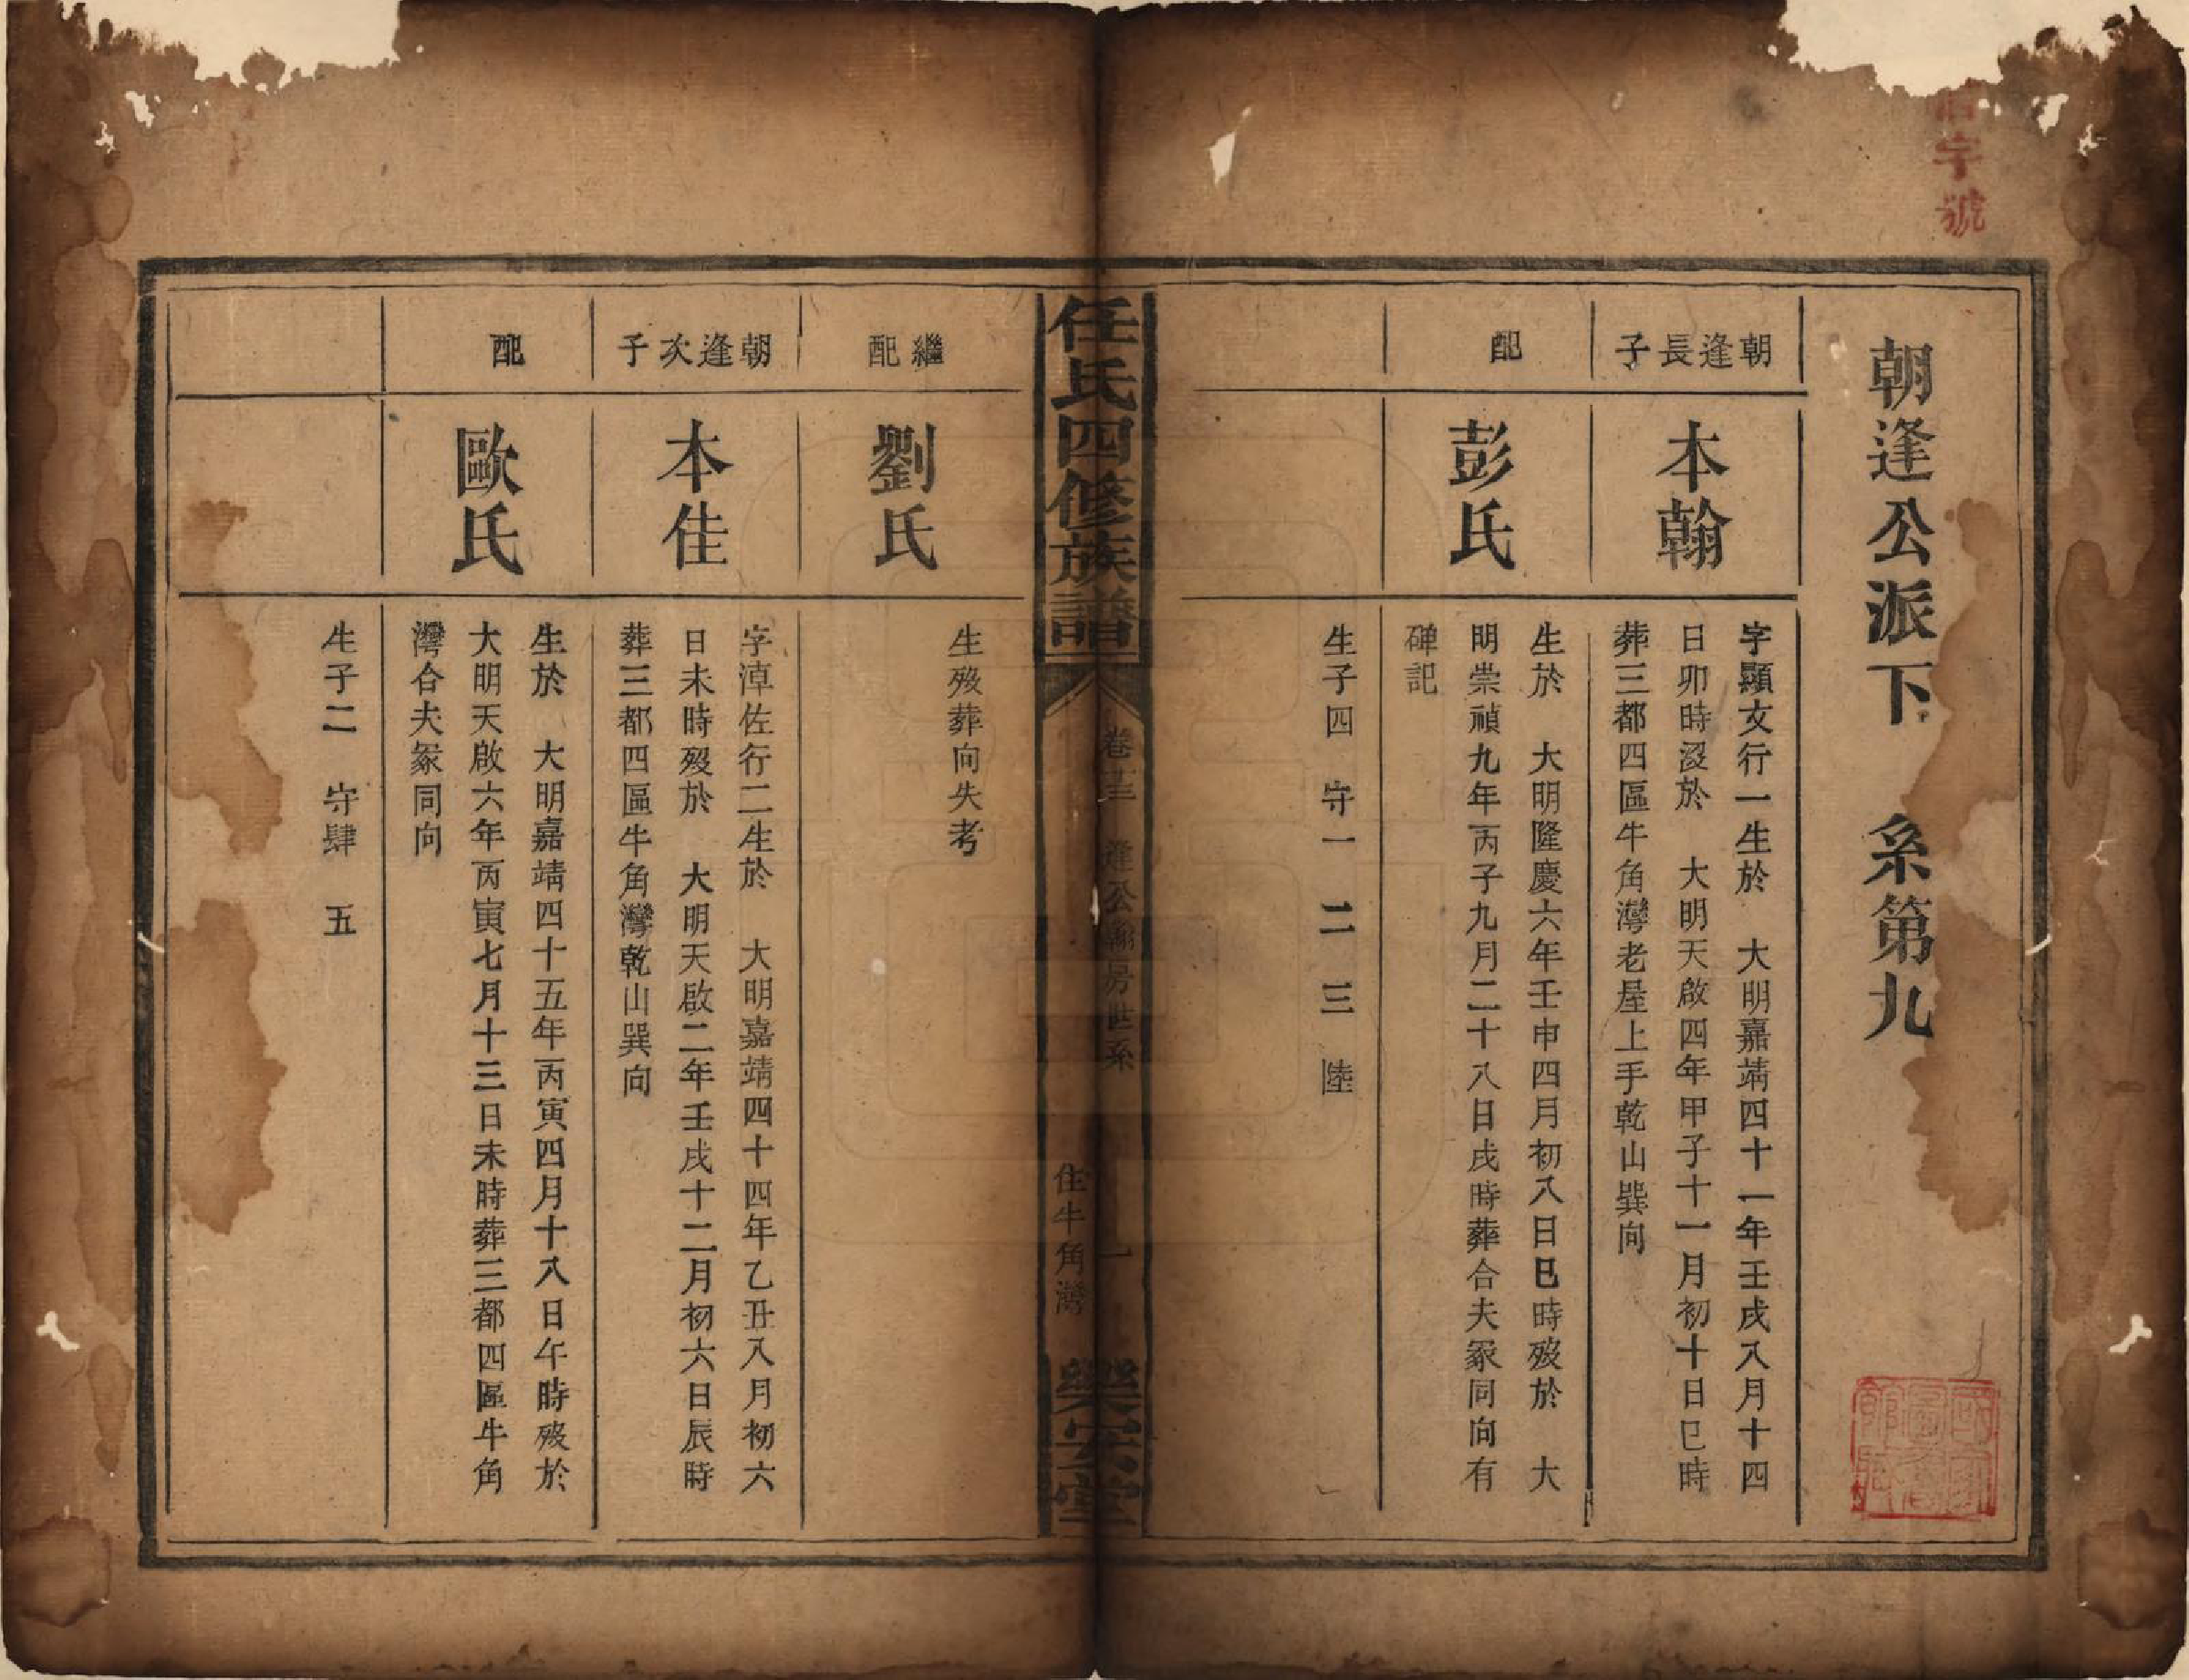 字號
朝逢公派下　系第九
朝逢長子
本翰
字顯文行一生於　大明嘉靖四十一年壬戌八月十四
日卯時沒於　大明天啟四年甲子十一月初十日巳時
葬三都四區牛角灣老屋上手乾山巽向
配
彭氏
生於　大明隆慶六年壬申四月初八日巳時歿於　大
明崇禎九年丙子九月二十八日戌時葬合夫冢同向有
碑記
生子四　守一　二　三　陸
任氏四修族譜
卷十三　逢公翰房世系　一
住牛角灣
樂安堂
繼配
劉氏
生歿葬向失考
朝逢次子
本佳
字漳佐行二生於　大明嘉靖四十四年乙丑八月初六
日未時歿於　大明天啟二年壬戌十二月初六日辰時
葬三都四區牛角灣乾山巽向
配
歐氏
生於　大明嘉靖四十五年丙寅四月十八日午時歿於
大明天啟六年丙寅七月十三日未時葬三都四區牛角
灣合夫冢同向
生子二　守肆　五